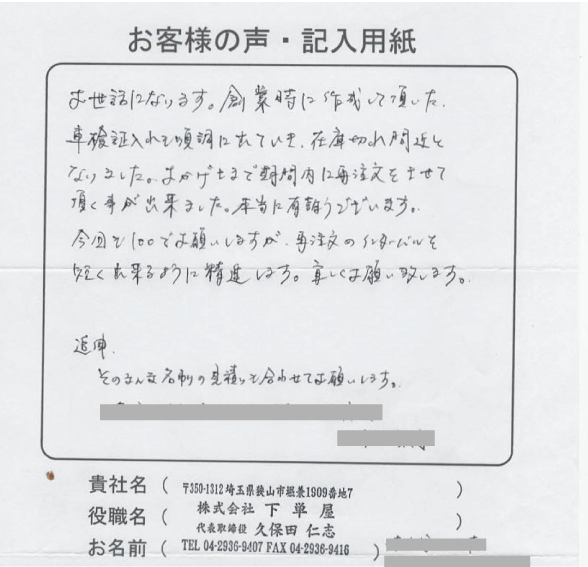 お客様の声・記入用紙
お世話になります。創業時に作成して頂いた、
車検証入れも順調に出ていき、在庫切れ間近と
なりました。おかげさまで期間内に再注文をさせて
頂く事が出来ました。本当に有難うございます。
今回も100でお願いしますが、再注文のインターバルを
短く出来るように精進します。宜しくお願い致します。
追伸、
そのまんま名刺の見積りも合わせてお願いします。
貴社名（ 〒350-1312 埼玉県狭山市堀兼1909番地7 ）
役職名（ 株式会社 下単屋 ）
代表取締役 久保田 仁志
お名前（ TEL 04-2936-9407 FAX 04-2936-9416 ）